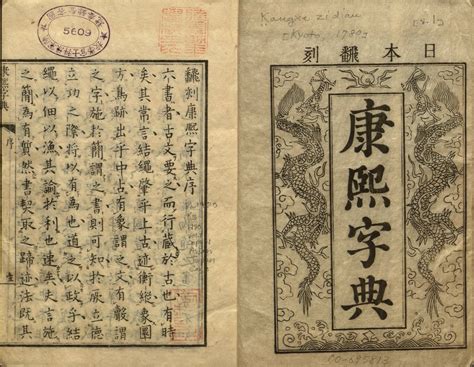 Kangxi zidian
日本翻刻
康熙字典
5609
翻刻康熙字典序
六書者古文要之而行藏於古也有時
矣其常言結繩肇乎上古迹衡縱象圖
方馬跡出乎中古有象謂之文有謂
之字施於簡謂之書則可知於厥立德
立功之際將以有為也道之以政乎結
繩以佃以漁其諭於利也速矣史言施
之簡為有然書契取之歸迹法既其
康熙字典
序